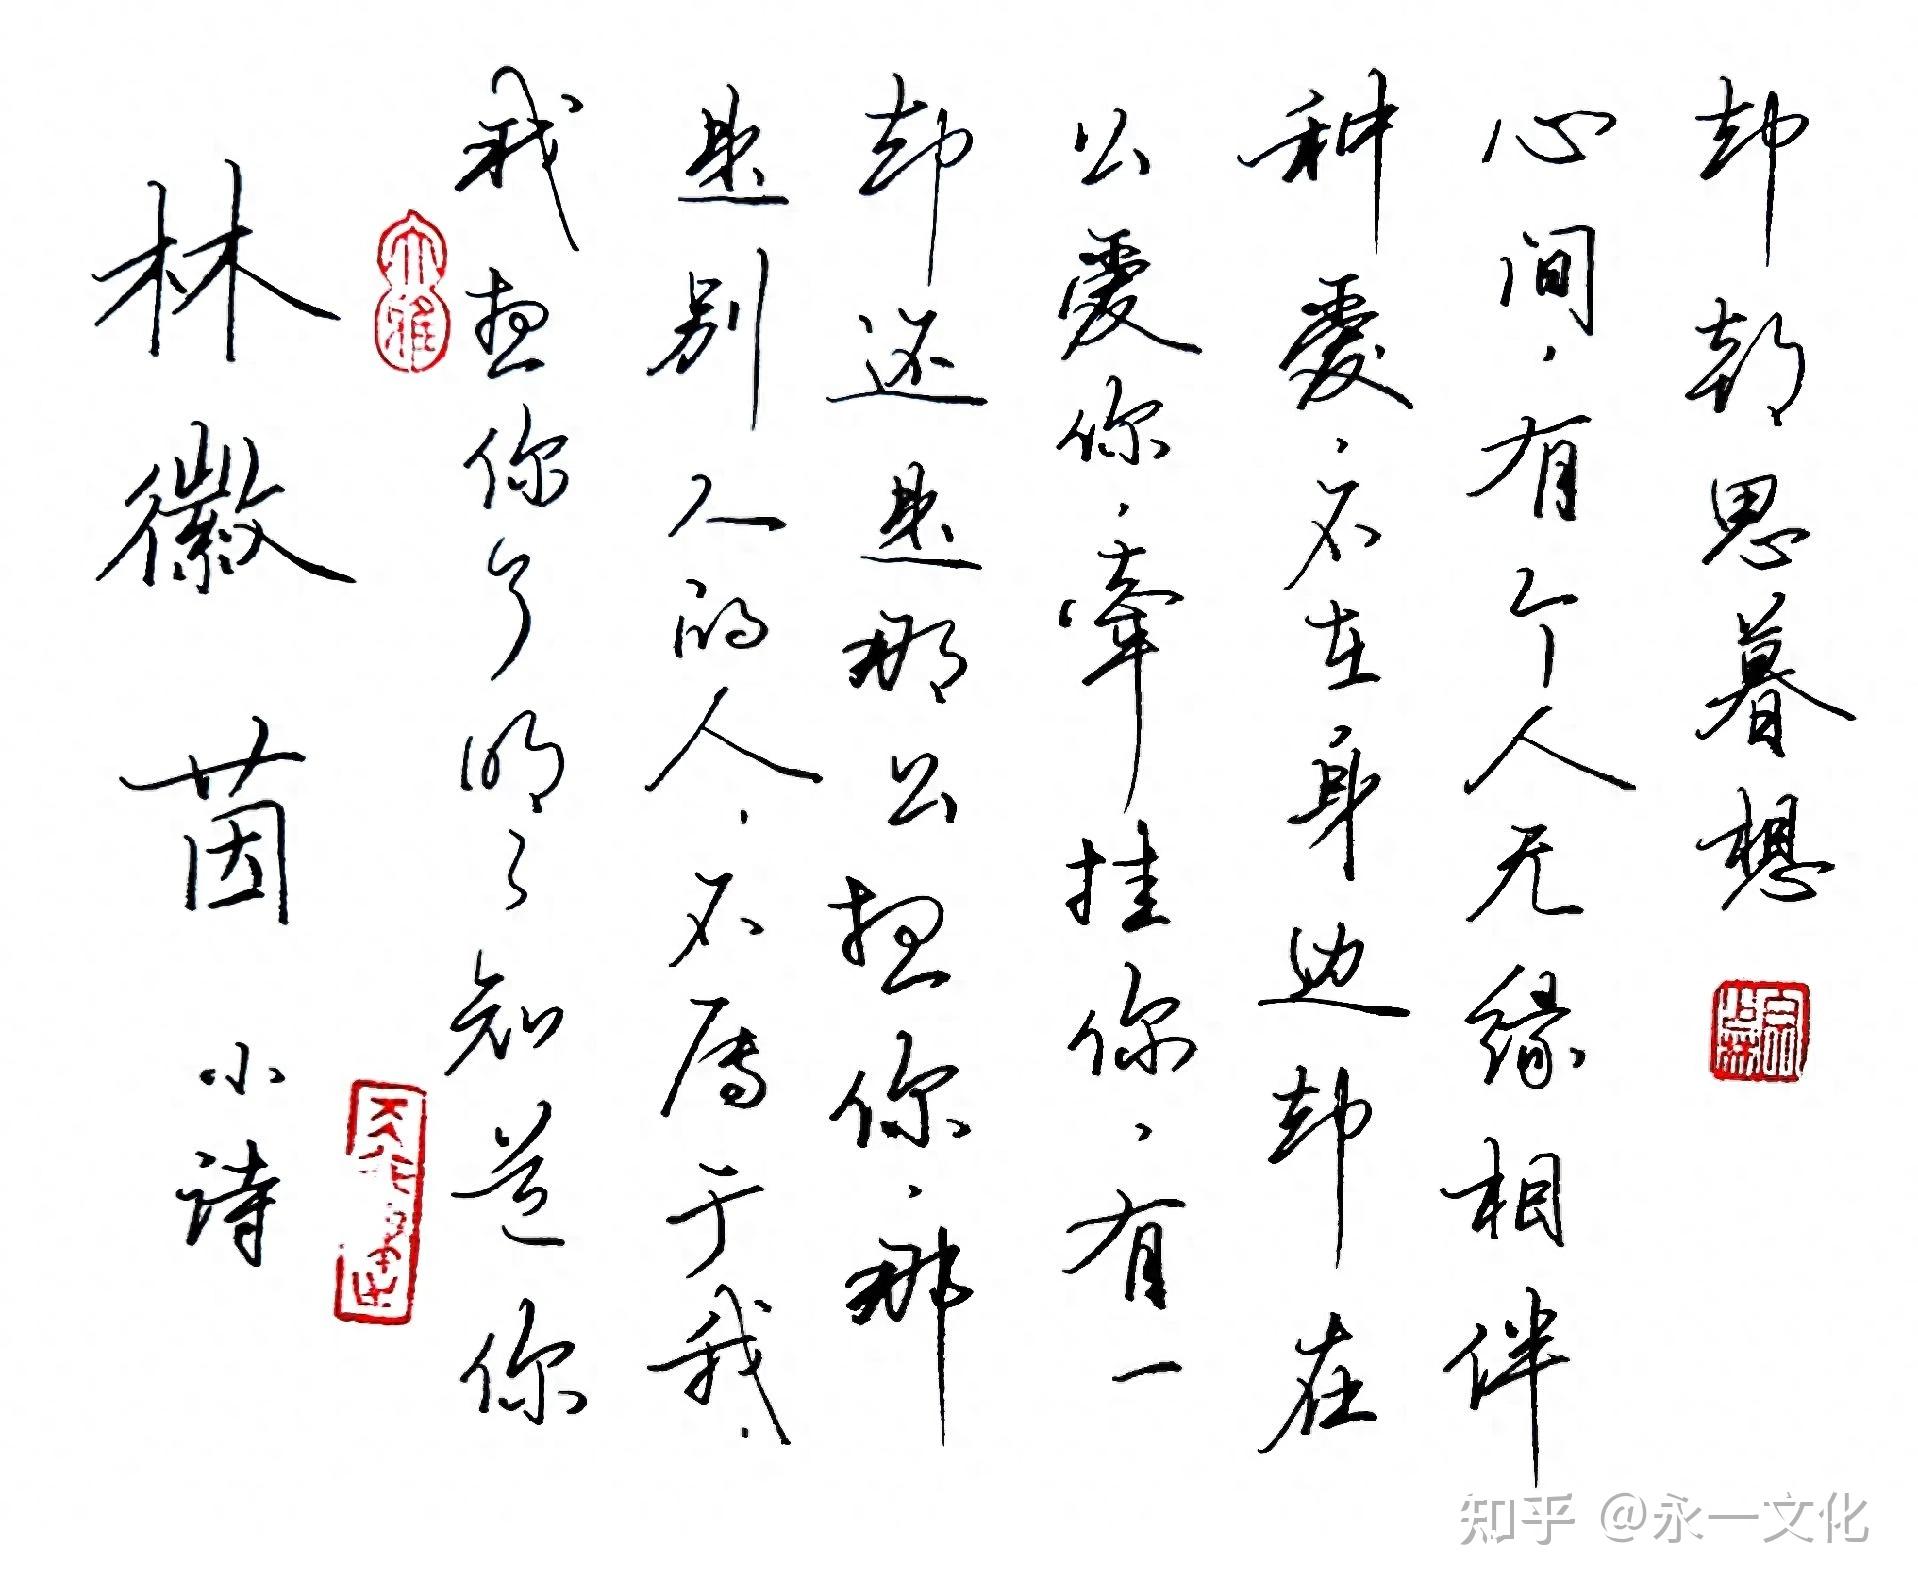 林徽茵小诗
大雅
我想你了明明知道你
是别人的人，不属于我，
却还是那么想你，那
么爱你，牵挂你，有一
种爱，不在身边却在
心间，有个人无缘相伴
却朝思暮想
知乎 @永一文化